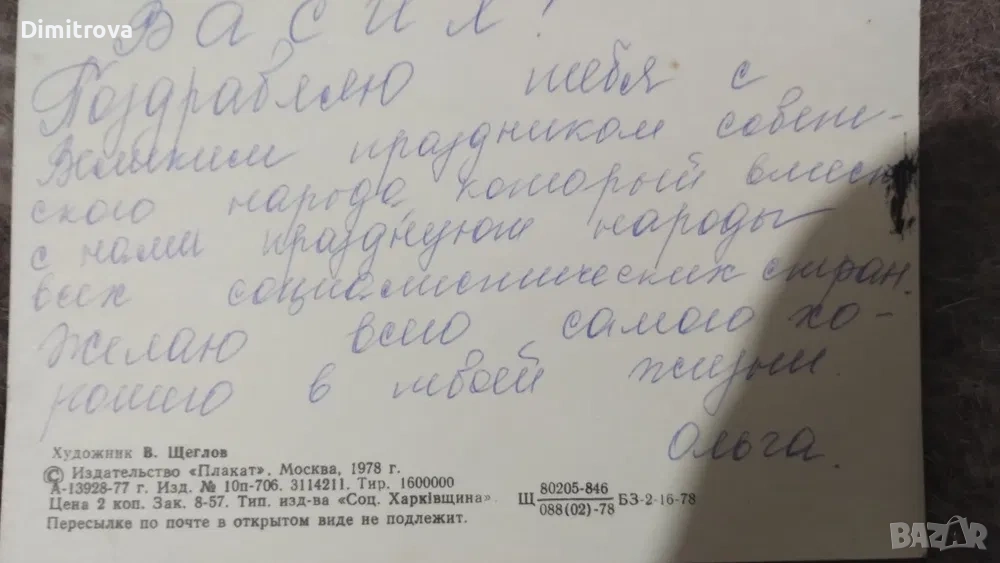 Dimitrova
ВАСИЛ!
Поздравляю тебя с
Великим праздником совет-
ского народа, который вмест
с нами празднуют народы
всех социалистических стран.
Желаю всего самого хо-
рошего в твоей жизни.
Ольга.
Художник В. Щеглов
© Издательство «Плакат». Москва, 1978 г.
А-13928-77 г. Изд. № 10п-706. 3114211. Тир. 1600000
Цена 2 коп. Зак. 8-57. Тип. изд-ва «Соц. Харкiвщина».
Пересылке по почте в открытом виде не подлежит.
Щ 80205-846 БЗ-2-16-78
088(02)-78
BAZAR